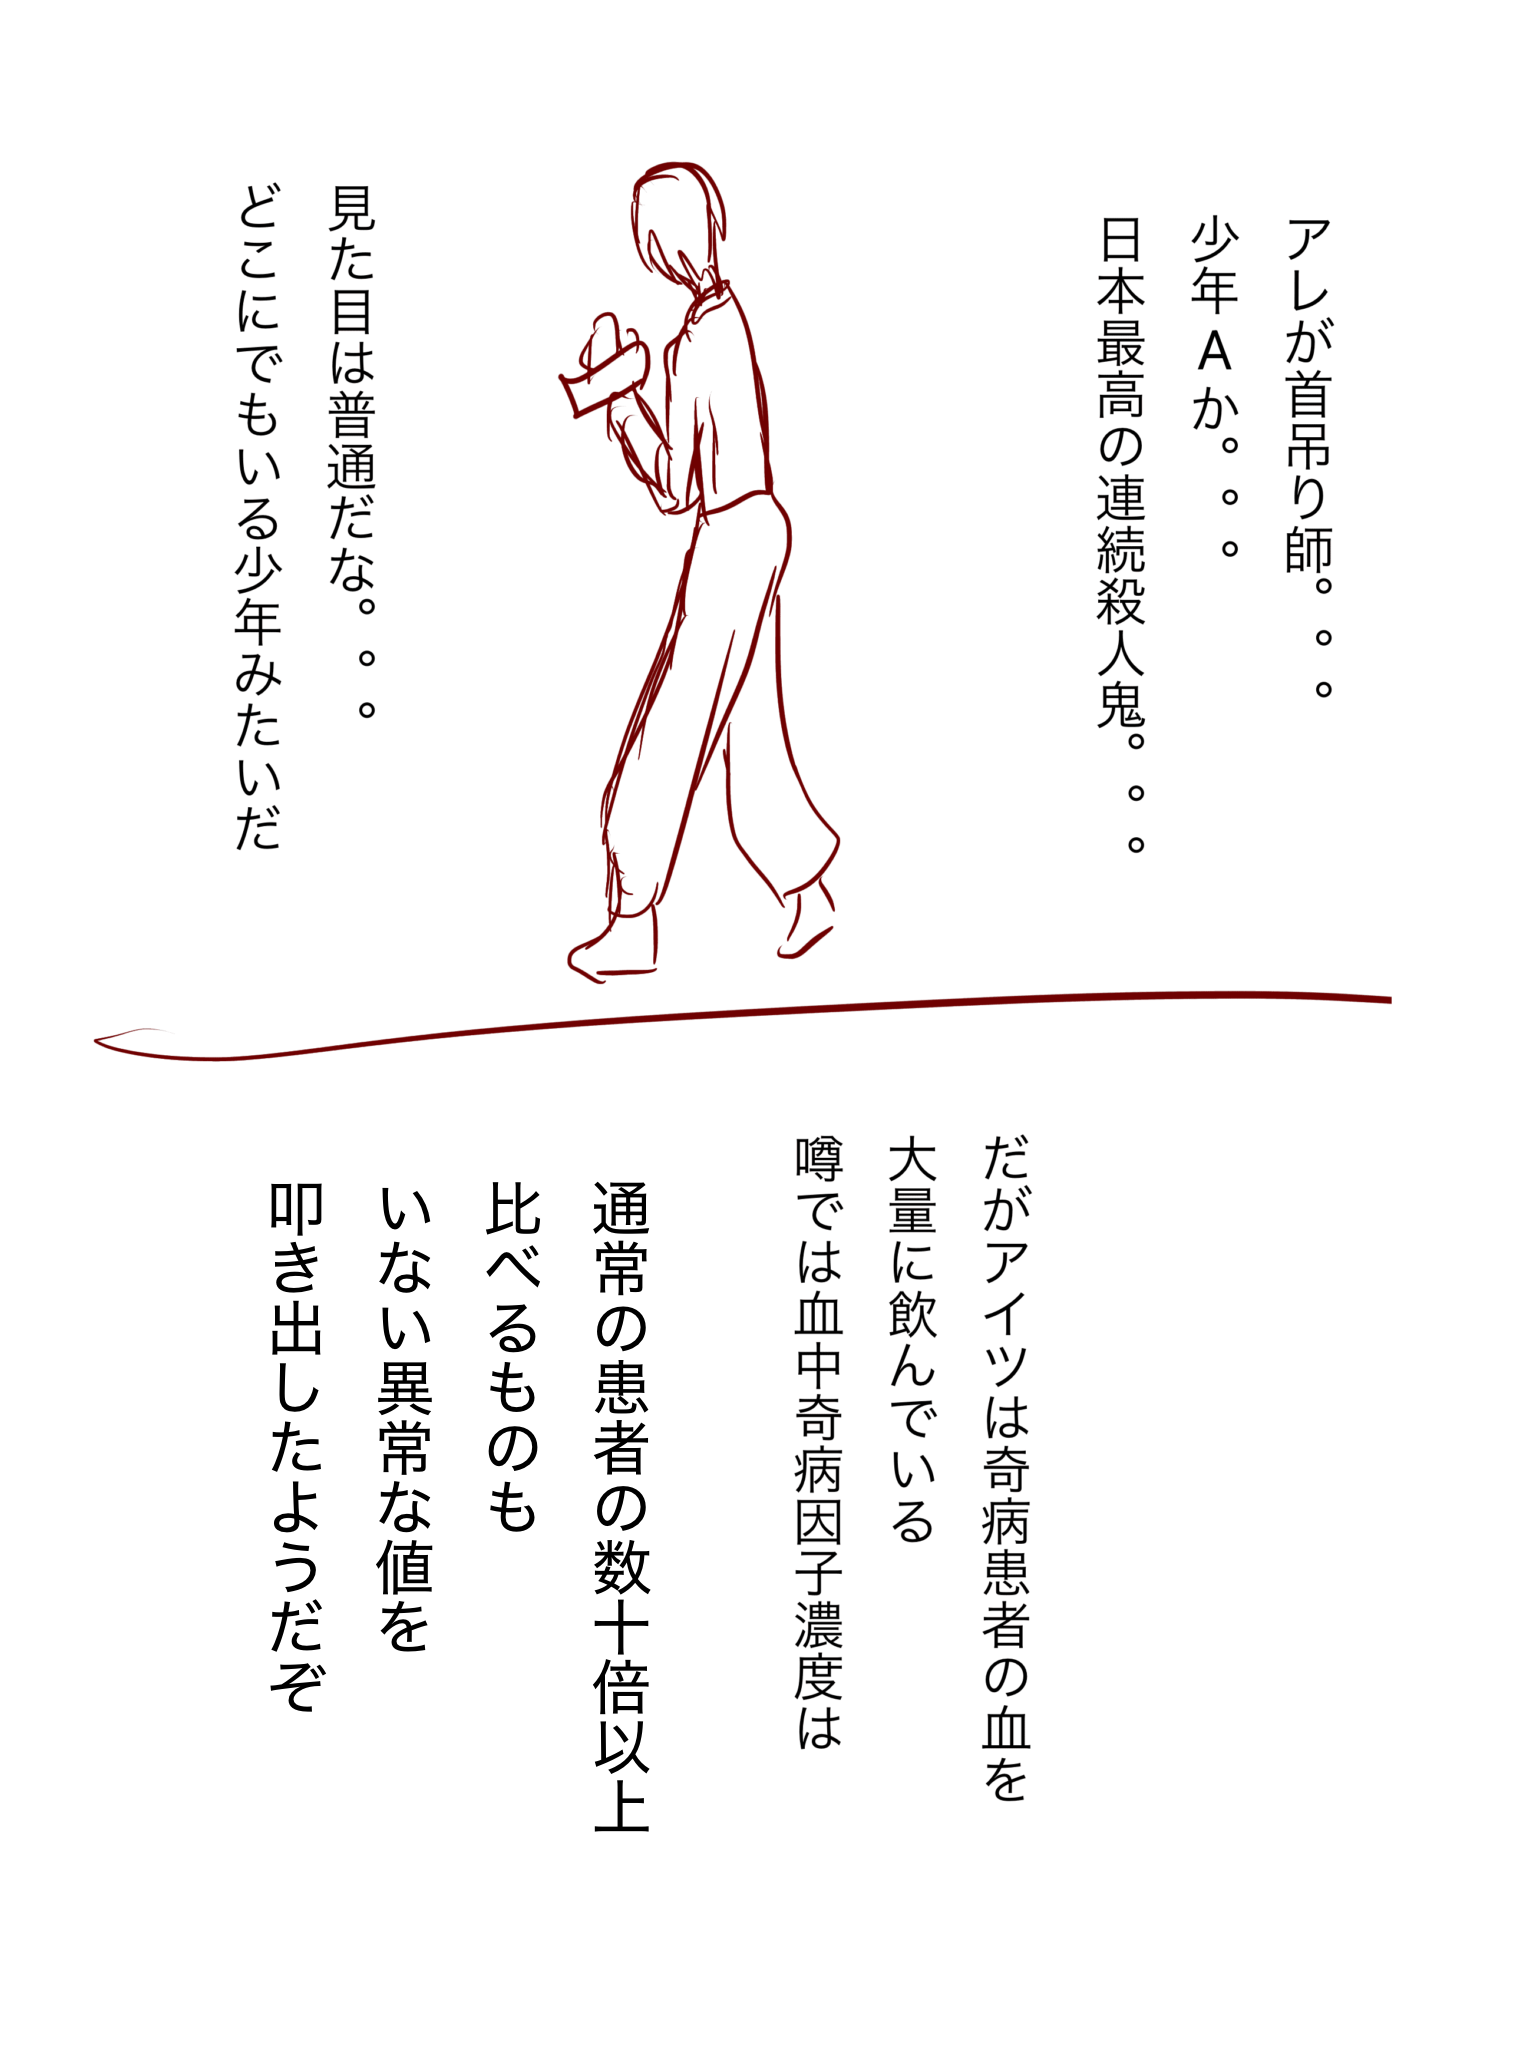 アレが首吊り師。。。
少年Aか。。。
日本最高の連続殺人鬼。。。
見た目は普通だな。。。
どこにでもいる少年みたいだ
だがアイツは奇病患者の血を
大量に飲んでいる
噂では血中奇病因子濃度は
通常の患者の数十倍以上
比べるものも
いない異常な値を
叩き出したようだぞ